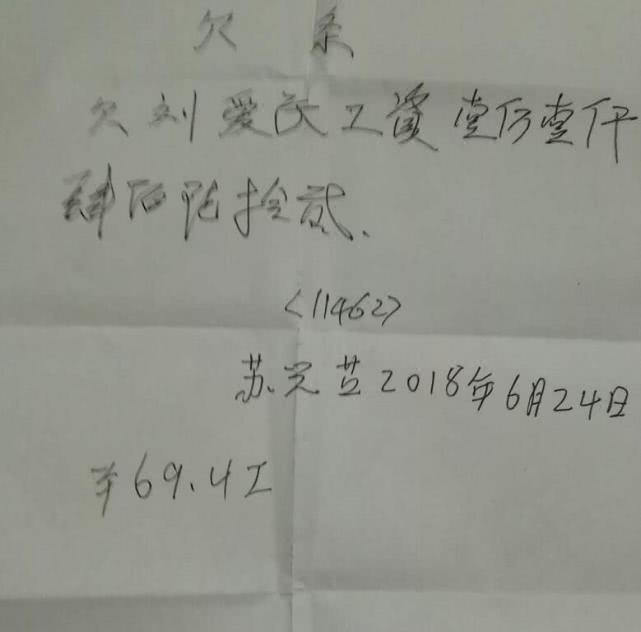 欠条
欠刘爱民工资壹万壹仟
肆百陆拾贰、
<11462>
苏 2018年6月24日
69.4工